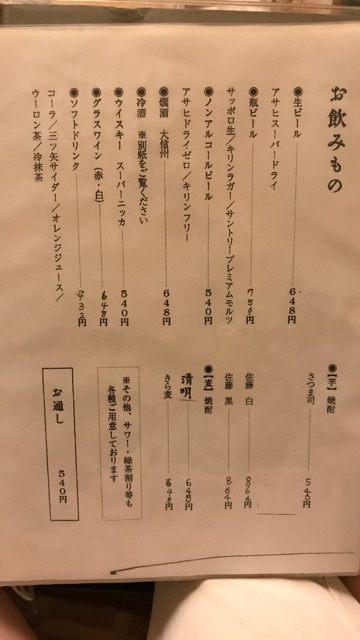 お飲みもの
◉生ビール 648円
アサヒスーパードライ
◉瓶ビール 756円
サッポロ生／キリンラガー／サントリープレミアムモルツ
◉ノンアルコールビール 540円
アサヒドライゼロ／キリンフリー
◉燗酒 大信州 648円
◉冷酒 ※別紙をご覧ください
◉ウイスキー スーパーニッカ 540円
◉グラスワイン（赤・白） 648円
◉ソフトドリンク 432円
コーラ／三ツ矢サイダー／オレンジジュース／
ウーロン茶／冷抹茶
◉【芋】焼酎
さつま司 540円
佐藤 白 864円
佐藤 黒 864円
◉【麦】焼酎
清明 648円
きら麦 648円
※その他、サワー・緑茶割り等も
各種ご用意しております
お通し 540円